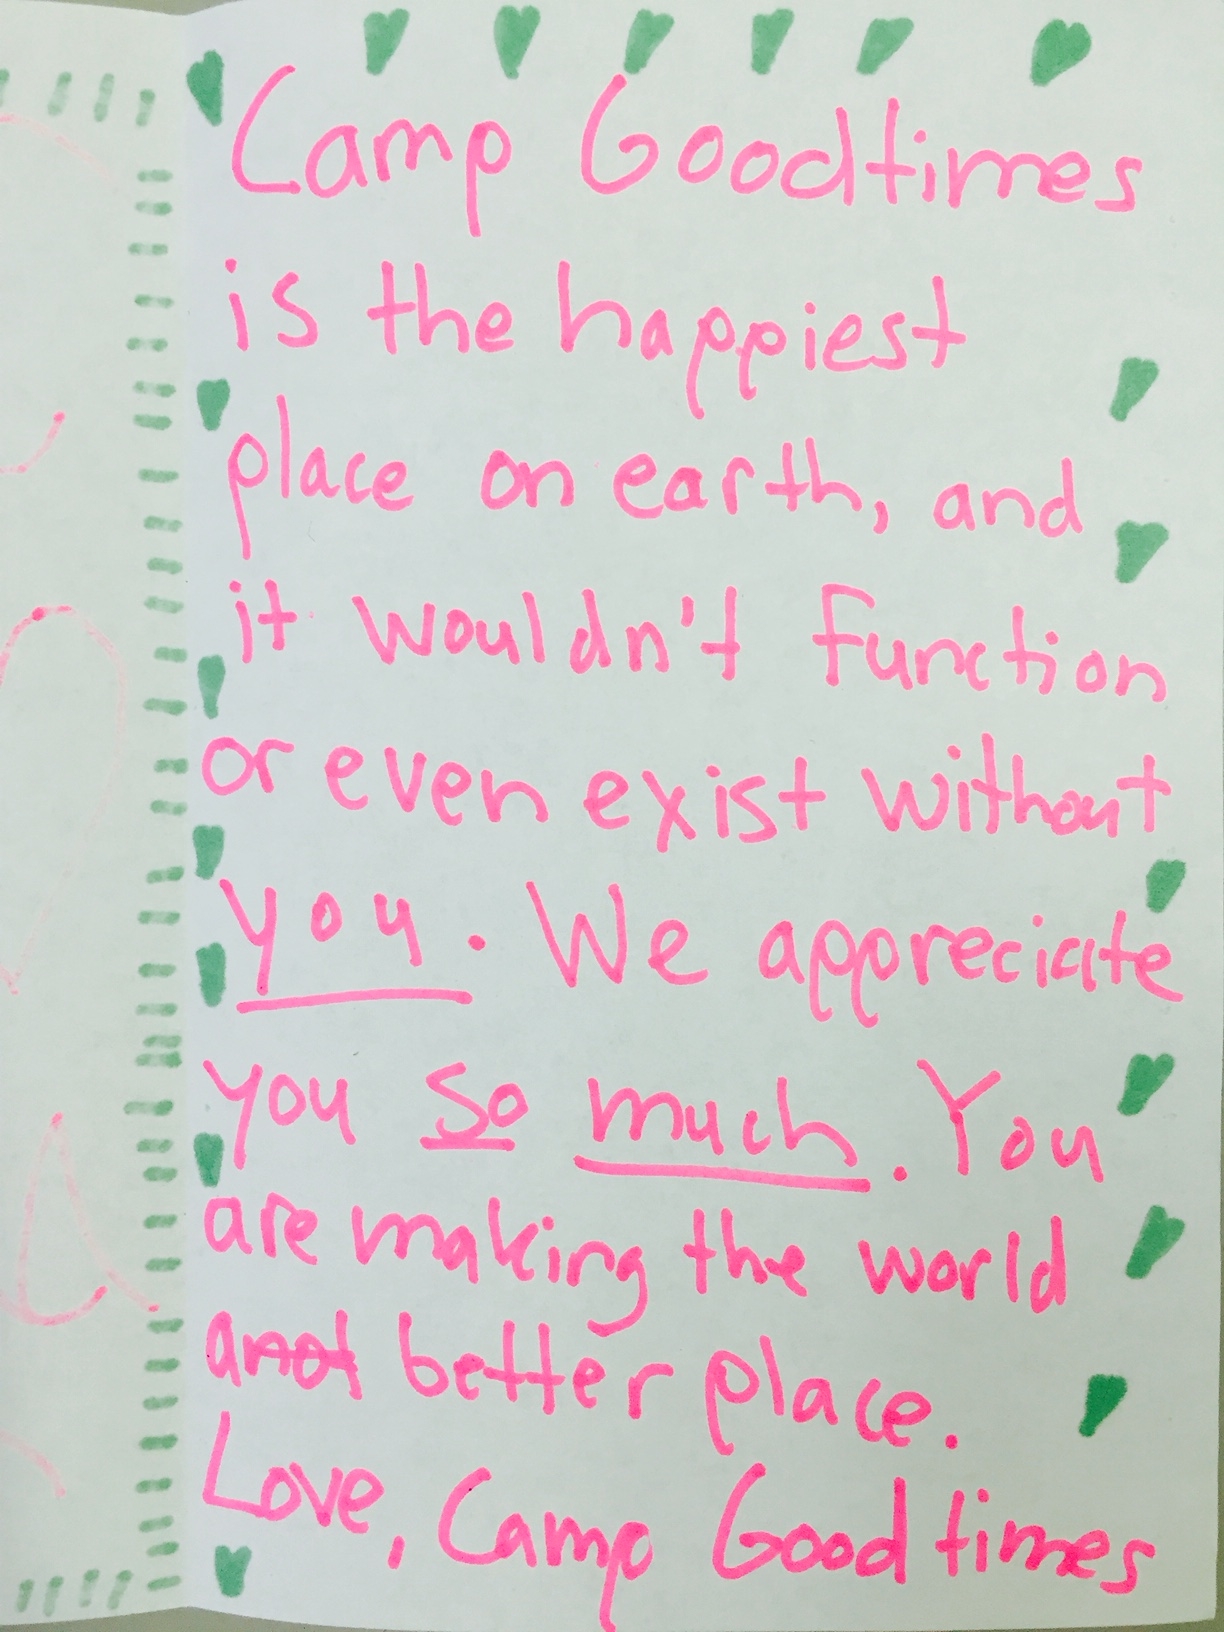 Camp Goodtimes
is the happiest
place on earth, and
it wouldn't function
or even exist without
you. We appreciate
you so much. You
are making the world
a better place.
Love, Camp Goodtimes